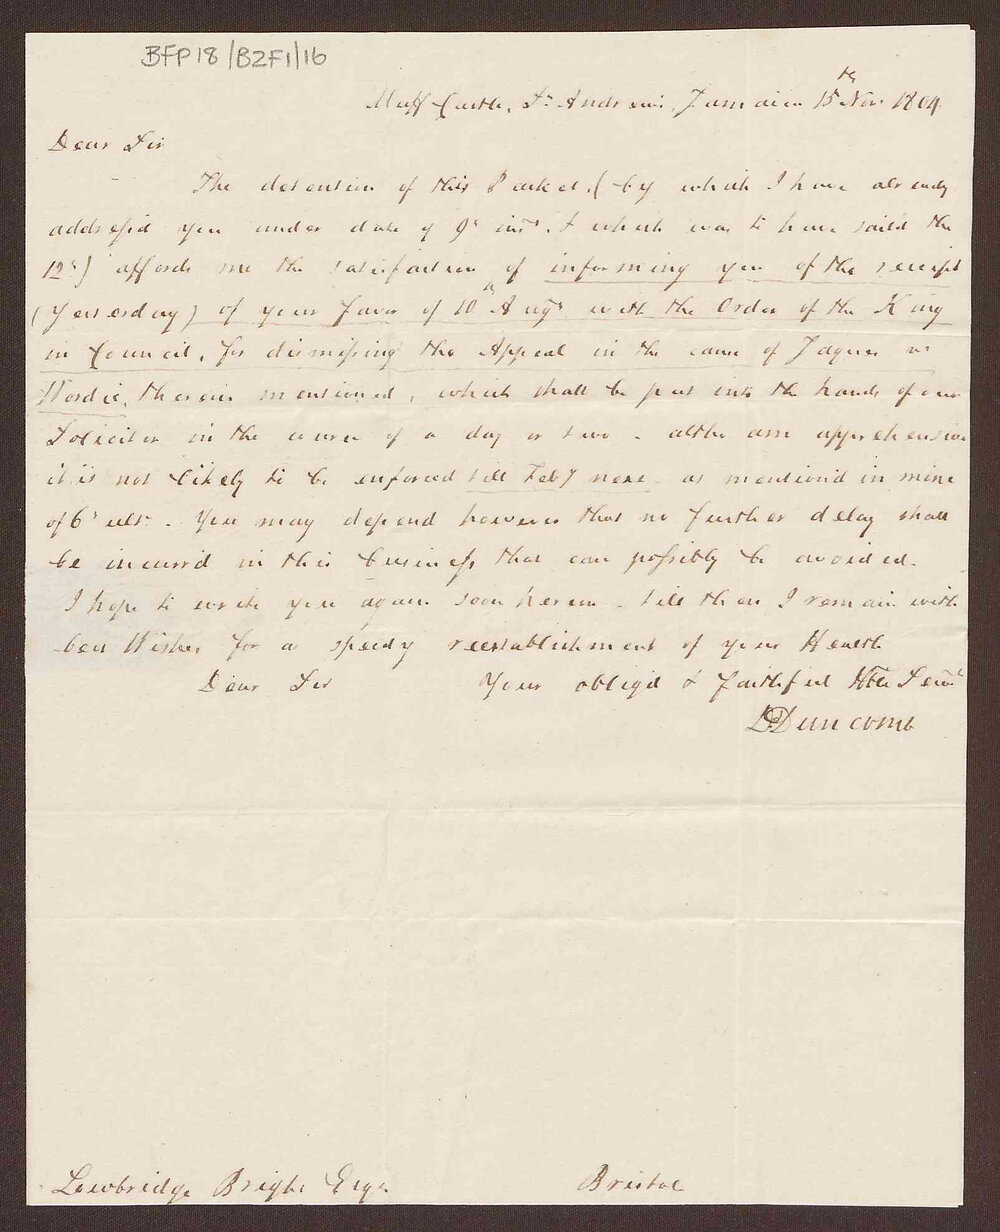 BFP18/B2F1/16
Muff Castle, St Andrews, Jamaica 15th Nov. 1804
Dear Sir
The detention of this Packet, (by which I have already
address'd you under date of 9th inst. & which was to have sail'd the
12th) affords me the satisfaction of informing you of the receipt
(Yesterday) of your favor of 10th Augt. with the Order of the King
in Council, for dismissing the Appeal in the cause of Jaques vs
Wordie, therein mentioned, which shall be put into the hands of our
Solicitor in the course of a day or two - altho am apprehensive
it is not likely to be enforced till Feby next - as mention'd in mine
of 6th ulto. - You may depend however that no further delay shall
be incurr'd in this business that can possibly be avoided -
I hope to write you again soon hereon - till then I remain with
best Wishes for a speedy reestablishment of your Health
Dear Sir Your oblig'd & faithful Hble Servt
Duncomb
Lowbridge Bright Esqr
Bristol